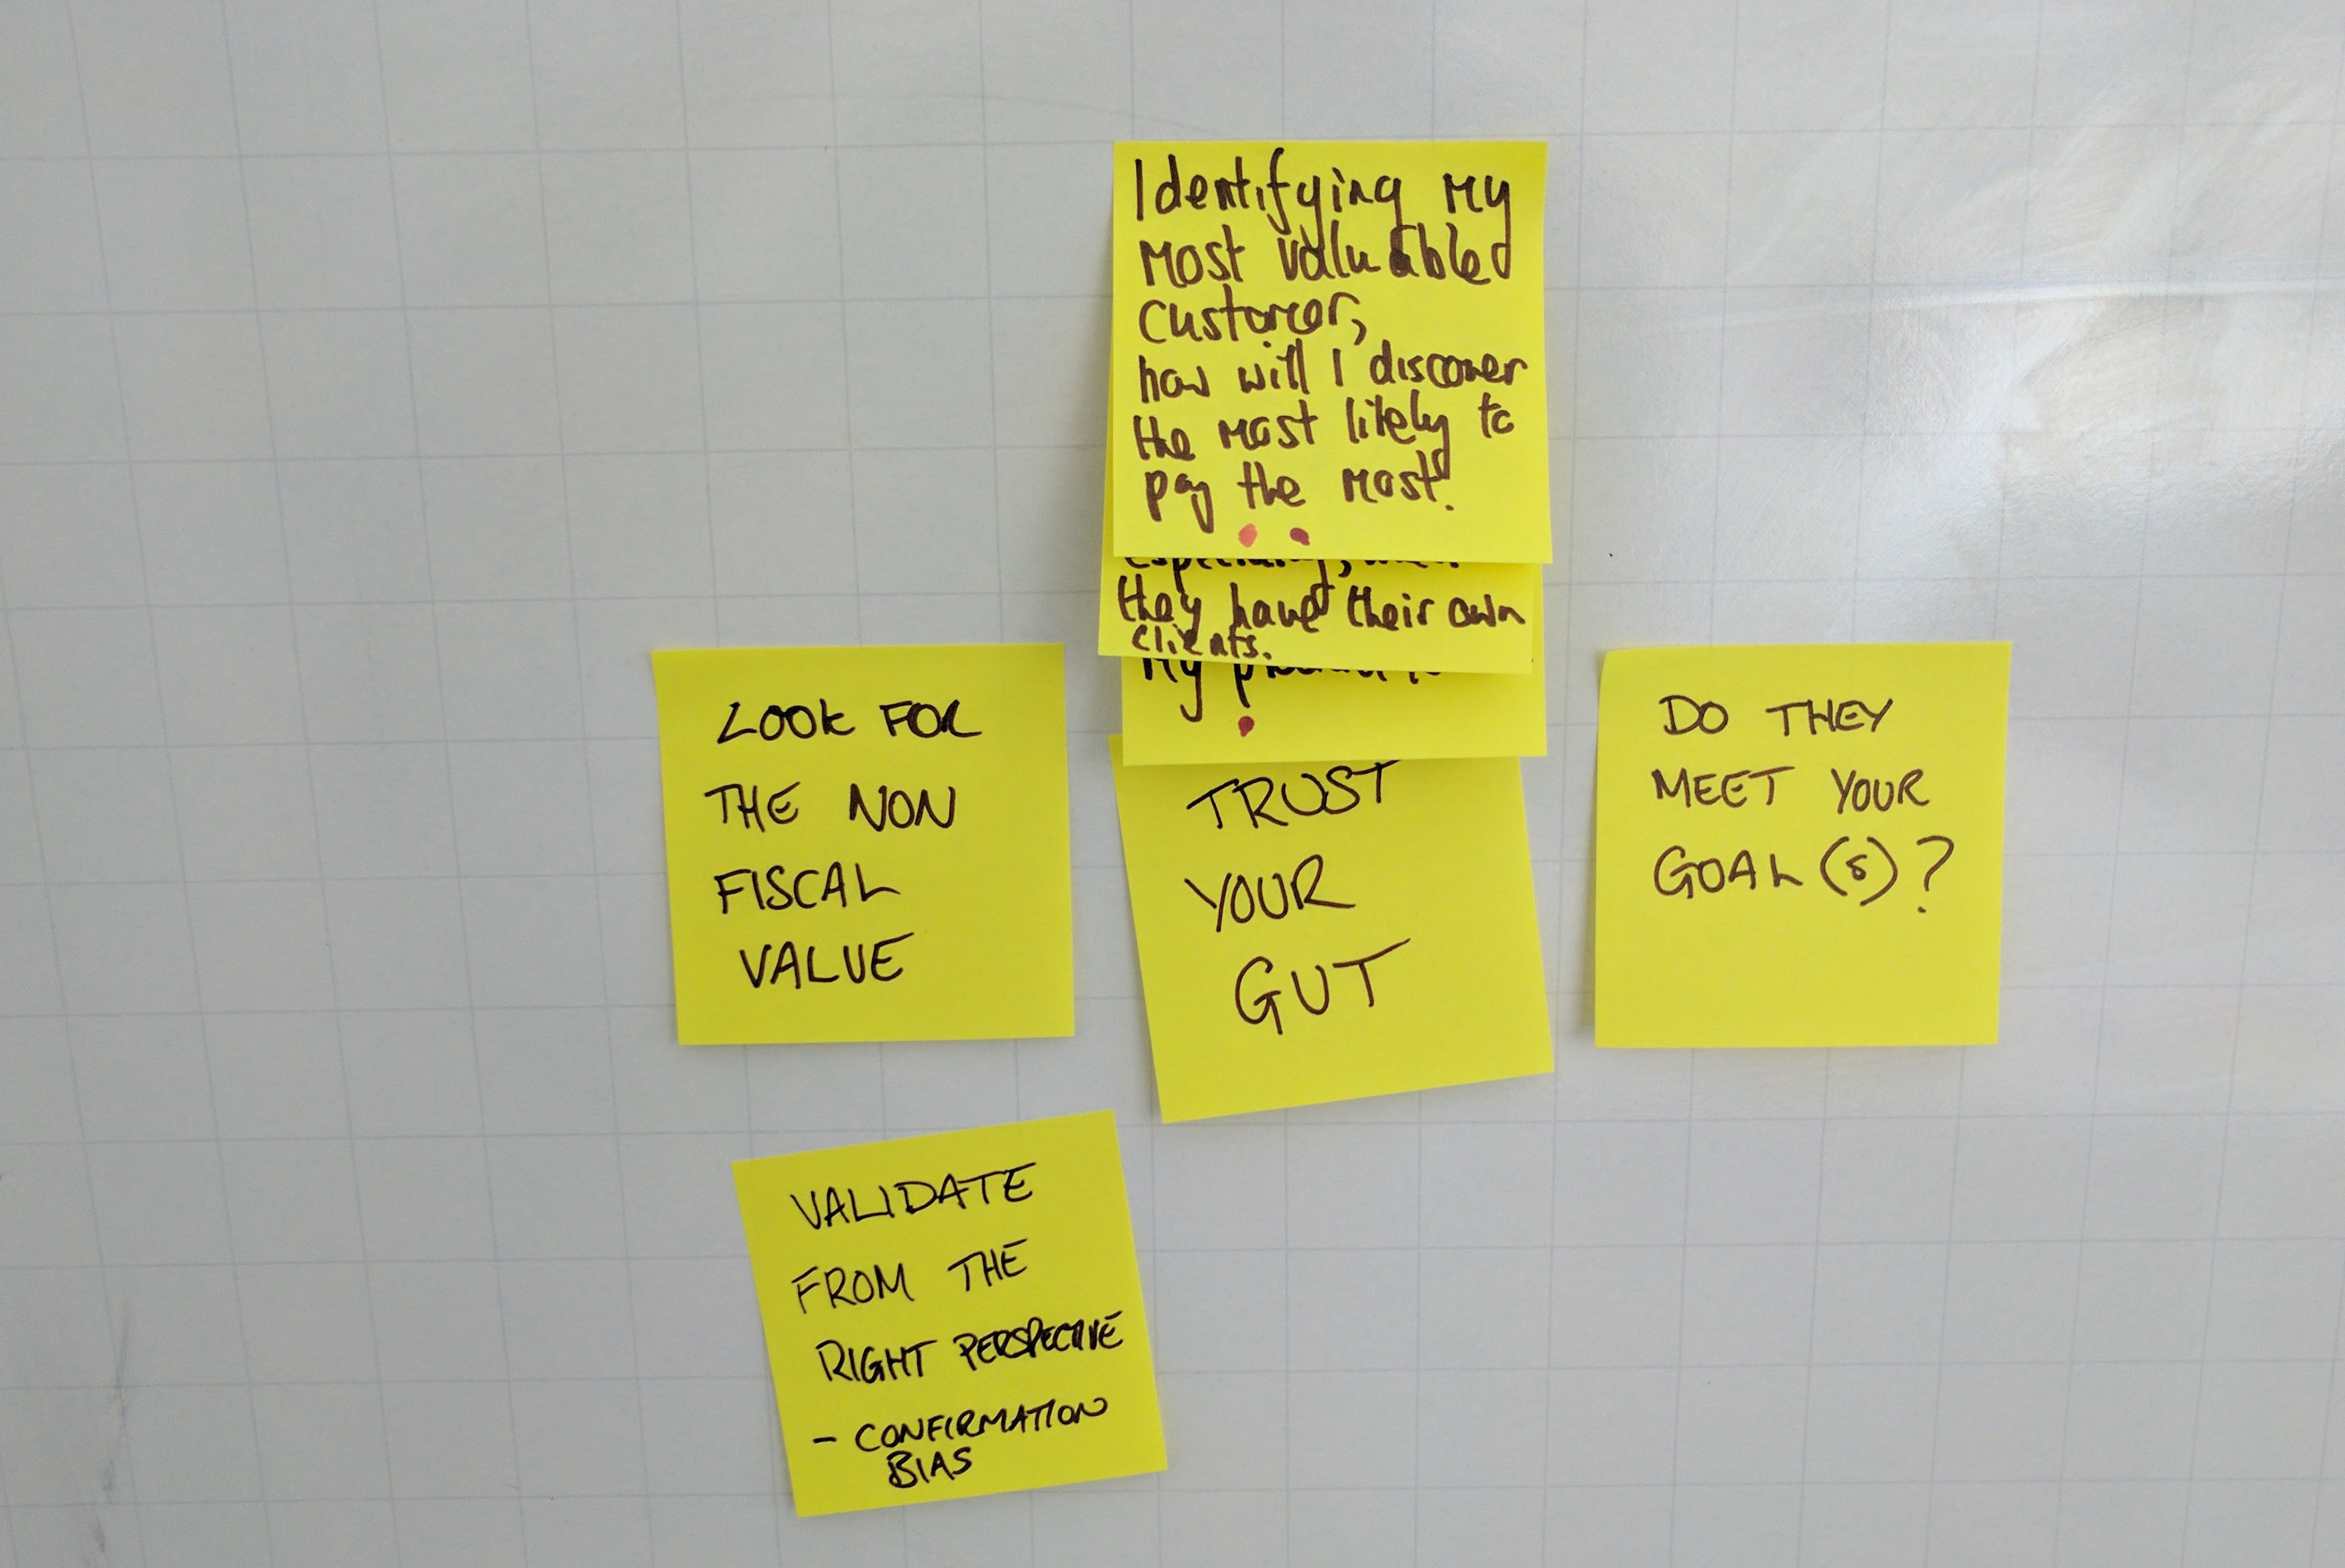 Identifying my
most valuabled
customer,
how will I discover
the most likely to
pay the most?
they have their own
clients.
My
TRUST
YOUR
GUT
LOOK FOR
THE NON
FISCAL
VALUE
DO THEY
MEET YOUR
GOAL(S)?
VALIDATE
FROM THE
RIGHT PERSPECTIVE
- CONFIRMATION
BIAS